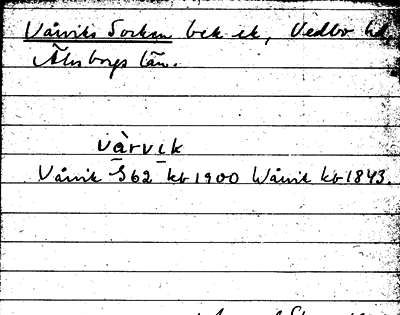 Vårviks Socken bek. ek, Vedbo hd,
Älvsborgs län.
vårvik
Vårvik G62 kb 1900 Wårvik kb 1843.